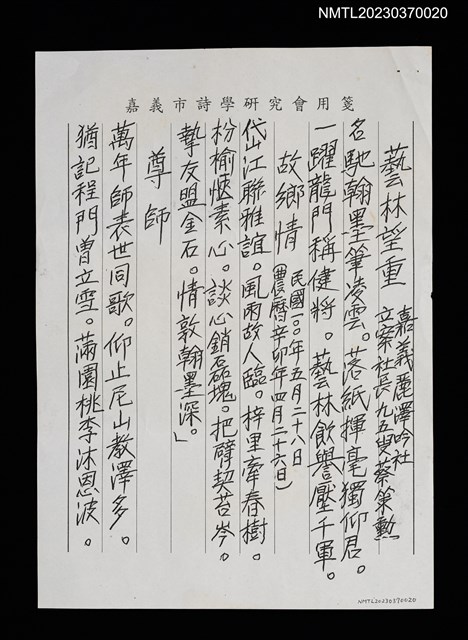 NMTL20230370020
嘉義市詩學研究會用箋
藝林望重
嘉義麗澤吟社
立案社長九五叟蔡策勳
名馳翰墨筆凌雲。落紙揮毫獨仰君。
一躍龍門稱健將。藝林飲譽壓千軍。
故鄉情
民國一〇〇年五月二十八日
(農曆辛卯年四月二十六日)
岱江聯雅誼。風雨故人臨。梓里牽春樹。
枌榆愜素心。談心銷磊塊。把臂契苔岑。
摯友盟金石。情敦翰墨深。」
尊師
萬年師表世同歌。仰止尼山教澤多。
猶記程門曾立雪。滿園桃李沐恩波。
NMTL20230370020